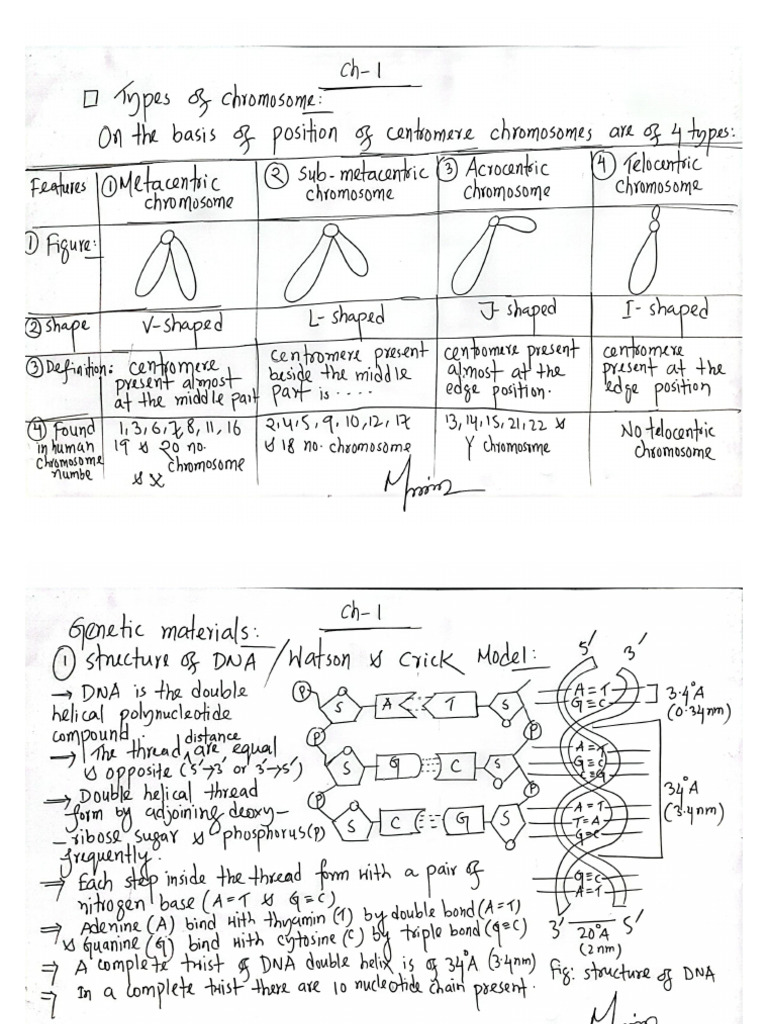 Ch-1
□ Types of chromosome:
On the basis of position of centromere chromosomes are of 4 types:
Features ① Metacentric chromosome ② Sub-metacentric chromosome ③ Acrocentric chromosome ④ Telocentric chromosome
① Figure:
② Shape V-shaped L-shaped J-shaped I-shaped
③ Definition: centromere present almost at the middle part centromere present beside the middle part is ..... centromere present almost at the edge position. centromere present at the edge position
④ Found in human chromosome numbe 1, 3, 6, 7, 8, 11, 16 19 & 20 no. chromosome & X 2, 4, 5, 9, 10, 12, 17 & 18 no. chromosome 13, 14, 15, 21, 22 & Y chromosome No telocentric chromosome
Ch-1
Genetic materials:
① structure of DNA / Watson & Crick Model:
→ DNA is the double
helical polynucleotide
compound.
→ The thread distance are equal
& opposite (5'→3' or 3'→5')
→ Double helical thread
form by adjoining deoxy-
-ribose sugar & phosphorus (P)
frequently.
⇒ Each step inside the thread form with a pair of
nitrogen base (A=T & G≡C)
⇒ Adenine (A) bind with thyamin (T) by double bond (A=T)
& Guanine (G) bind with cytosine (C) by triple bond (G≡C)
⇒ A complete twist of DNA double helix is of 34°A (3.4nm)
⇒ In a complete twist there are 10 nucleotide chain present.
P S A T S
P P
S G C S
P P
S C G S
5' 3'
A=T
G≡C
3.4°A
(0.34nm)
A=T
G≡C
C≡G
34°A
(3.4nm)
A=T
T=A
G≡C
G≡C
A=T
3' 5'
20°A
(2nm)
Fig: structure of DNA